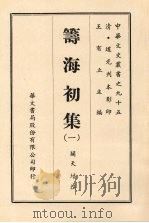 中華文史叢書之九十五
清・道光刊本影印
王有立主編
籌海初集
(一)
關天培
華文書局股份有限公司印行